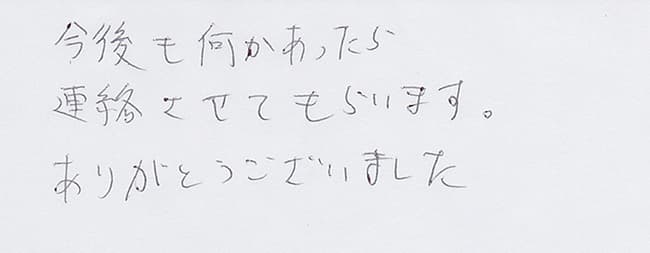 今後も何かあったら
連絡させてもらいます。
ありがとうございました